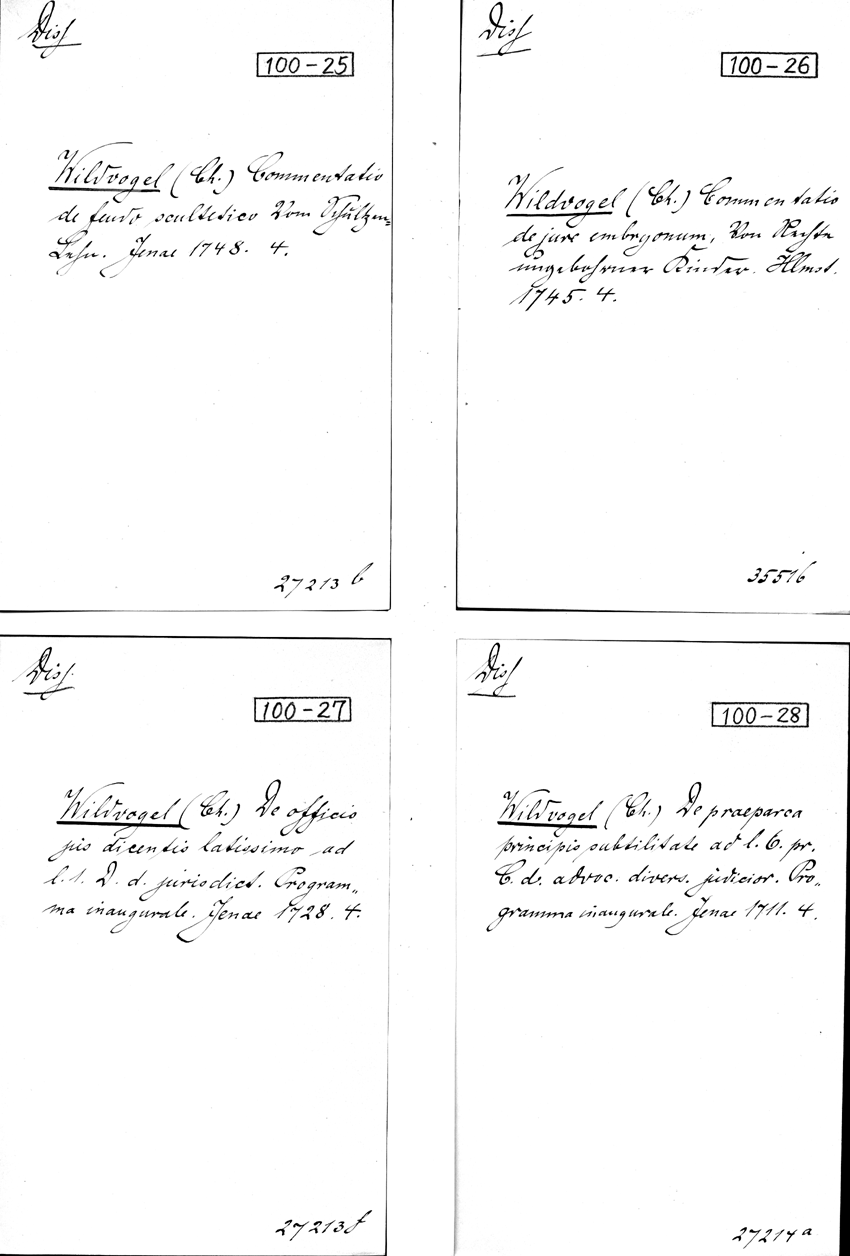 Diss
100-25
Wildvogel (Ch.) Commentatio
de feudo scultetico Vom Schultzen=
Lehn. Jenae 1748. 4.
27213 b
Diss
100-26
Wildvogel (Ch.) Commentatio
de jure embryonum, Von Rechte
ungebohrner Kinder. Hlmst.
1745. 4.
35516
Diss.
100-27
Wildvogel (Ch.) De officio
jus dicentis latissimo ad
l. 1. D. d. jurisdict. Program„
ma inaugurale. Jenae 1728. 4.
27213f
Diss
100-28
Wildvogel (Ch.) De praeparca
principis subtilitate ad l. 6. pr.
C. de advoc. divers. judicior. Pro„
gramma inaugurale. Jenae 1711. 4.
27214a